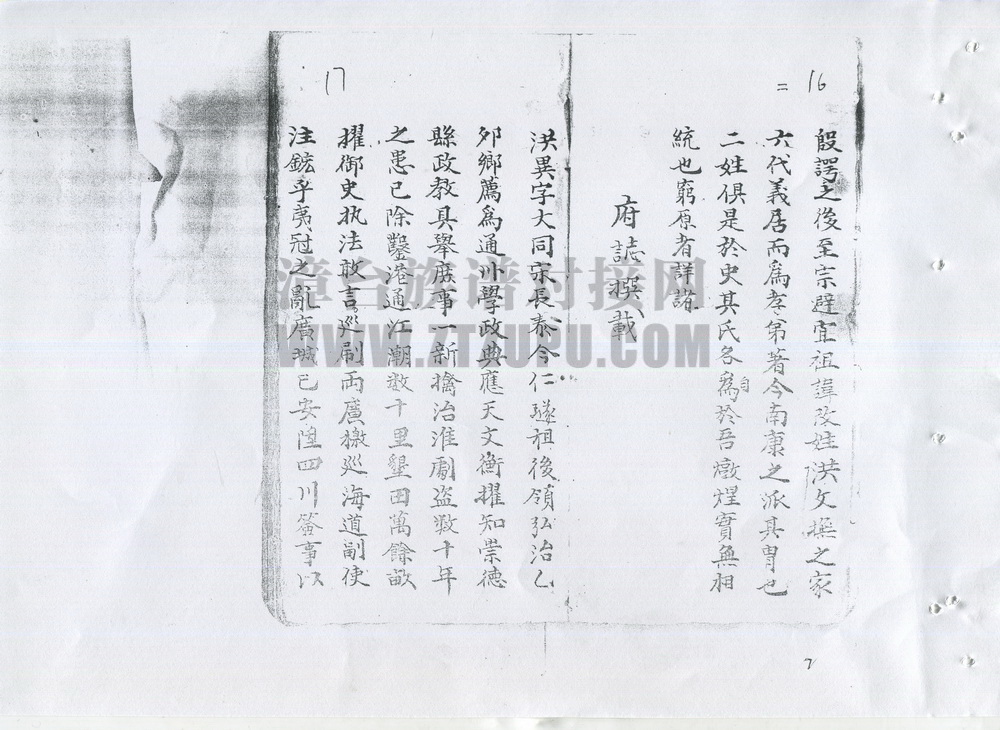 16
二
殷諤之後至宗避宣祖諱改姓洪文撫之家
六代義居而爲孝弟著今南康之派其胄也
二姓俱是於史其氏各爲於吾燉煌實無相
自
統也窮原者詳諸
府誌撰載
17
洪異字大同宋長泰令仁璲祖後領弘治乙
夘鄉薦爲通州學政典應天文衡擢知崇德
縣政教具舉庶事一新擒治淮劇盗数十年
之患已除鑿港通江潮数十里墾田萬餘畝
擢御史执法敢言巡刷両廣檄巡海道副使
注鋐乎夷冠之亂廣城已安陞四川簽事以
7
漳台族谱对接网
WWW.ZTZUPU.COM